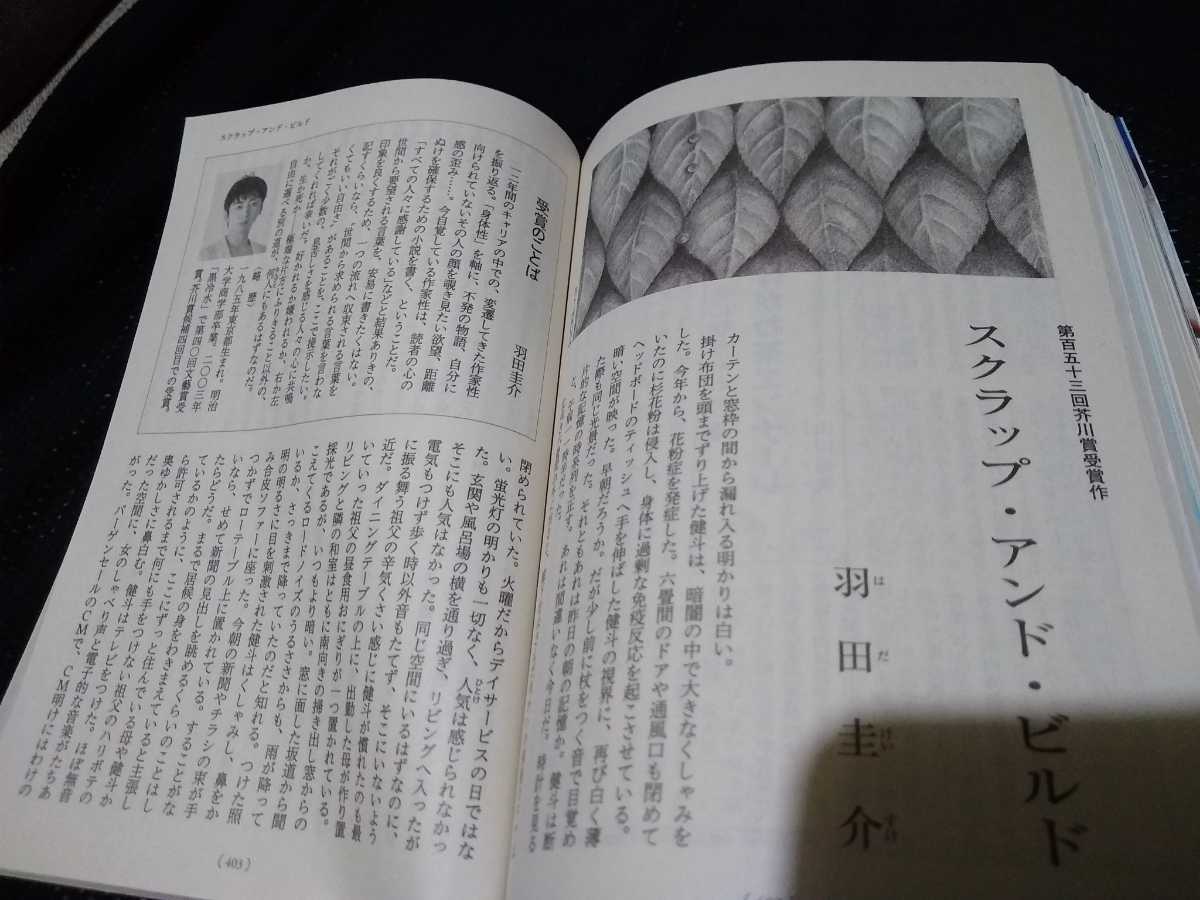 第百五十三回芥川賞受賞作
スクラップ・アンド・ビルド
羽田圭介
はだけいすけ
カーテンと窓枠の間から漏れ入る明かりは白い。
掛け布団を頭までずり上げた健斗は、暗闇の中で大きなくしゃみを
した。今年から、花粉症を発症した。六畳間のドアや通風口も閉めて
いたのに杉花粉は侵入し、身体に過剰な免疫反応を起こさせている。
ヘッドボードのティッシュへ手を伸ばした健斗の視界に、再び白く薄
暗い空間が映った。早朝だろうか。だが少し前に杖をつく音で目覚め
た際も同じ光景だった。それともあれは昨日の朝の記憶か。健斗は断
片的な記憶の時系列を正す。あれは間違いなく今日だ。時計を見る
スクラップ・アンド・ビルド
受賞のことば
羽田圭介
一二年間のキャリアの中での、変遷してきた作家性
を振り返る。「身体性」を軸に、不発の物語、自分に
向けられていないその人の顔を覗き見たい欲望、距離
感の歪み……。今自覚している作家性は、読者の心の
ぬけを確保するための小説を書く、ということだ。
「すべての人々に感謝している」などと結果ありきの、
世間から要望される言葉を、安易に書きたくはない。
印象を良くするため、一つの流れへ収束される言葉を
記すくらいなら、“世間から求められる言葉を言わな
くてもいい自由さ”があることを、ここで提示したい。
それがごく少数の、息苦しさを感じる人々の心に共鳴
してくれれば幸いだ。好かれるか嫌われるか、右か左
か、生か死か――極端な片方にふりきること以外の、
自由に選べる別の道が、何人にもあるはずなのだ。
(略歴)
一九八五年東京都生まれ。明治
大学商学部卒業。二〇〇三年
「黒冷水」で第四〇回文藝賞受
賞。芥川賞候補四回目での受賞。
閉められていた。火曜だからデイサービスの日ではな
い。蛍光灯の明かりも一切なく、人気は感じられなかっ
ひとけ
た。玄関や風呂場の横を通り過ぎ、リビングへ入ったが
そこにも人気はなかった。同じ空間にいるはずなのに、
電気もつけず歩く時以外音もたてず、そこにいないよう
に振る舞う祖父の辛気くさい感じに健斗が慣れたのも最
近だ。ダイニングテーブルの上に、出勤した母が作り置
いていった祖父の昼食用おにぎりが一つ置かれている。
リビングと隣の和室はともに南向きの掃き出し窓からの
採光であるが、いつもより暗い。窓に面した坂道から聞
こえてくるロードノイズのうるささからも、雨が降って
いるか、さっきまで降っていたのだと知れる。つけた照
明の明るさに目を刺激された健斗はくしゃみし、鼻をか
み合皮ソファーに座った。今朝の新聞やチラシの束が手
つかずでローテーブル上に置かれている。することがな
いなら、せめて新聞の見出しを眺めるくらいのことはし
たらどうだ。まるで居候の身をわきまえていると主張し
ているかのように、ここにずっと住んでいる母や健斗か
ら許可されるまで何にも手をつけない祖父のハリボテの
奥ゆかしさに鼻白む。健斗はテレビをつけた。ほぼ無音
だった空間に、女のしゃべり声と電子的な音楽がたちあ
がった。バーゲンセールのCMで、CM明けにはわけの
(403)